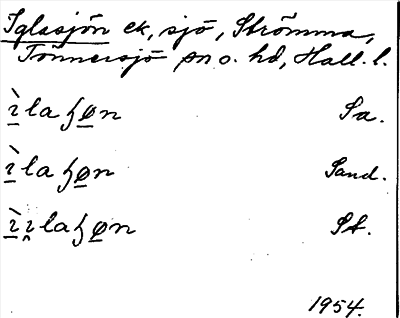 Iglasjön ek, sjö, Strömma,
Tönnersjö sn o. hd, Hall. l.
ı̲̀laɧø̲n Sa.
ı̲̀laɧø̲n Sand.
ı̲̀ı̯laɧø̲n St.
1954.